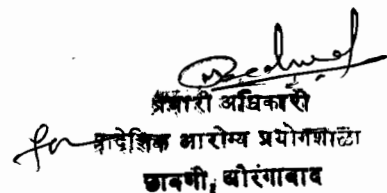 प्रभारी अधिकारी
for प्रादेशिक आरोग्य प्रयोगशाळा
छावणी, औरंगाबाद